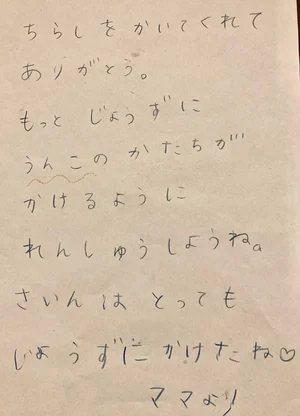 ちらしをかいてくれて
ありがとう。
もっと じょうずに
うんこの かたちが
かけるように
れんしゅうしようね。
さいんは とっても
じょうずに かけたね♡
ママより